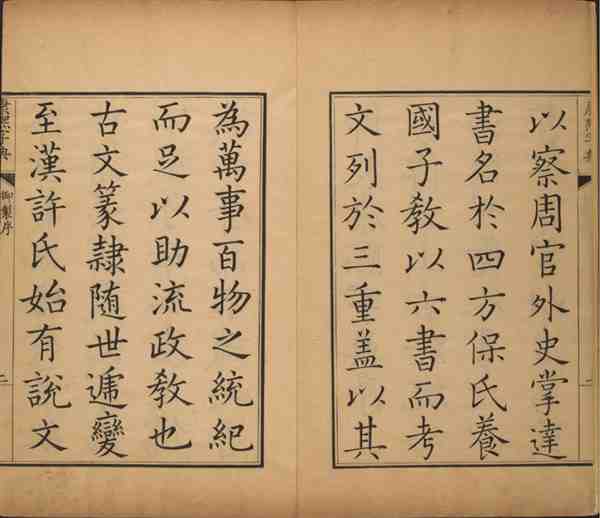 康熙字典
以察周官外史掌達
書名於四方保氏養
國子教以六書而考
文列於三重蓋以其
為萬事百物之統紀
而足以助流政教也
古文篆隸随世遞變
至漢許氏始有說文
康熙字典
御製序
二